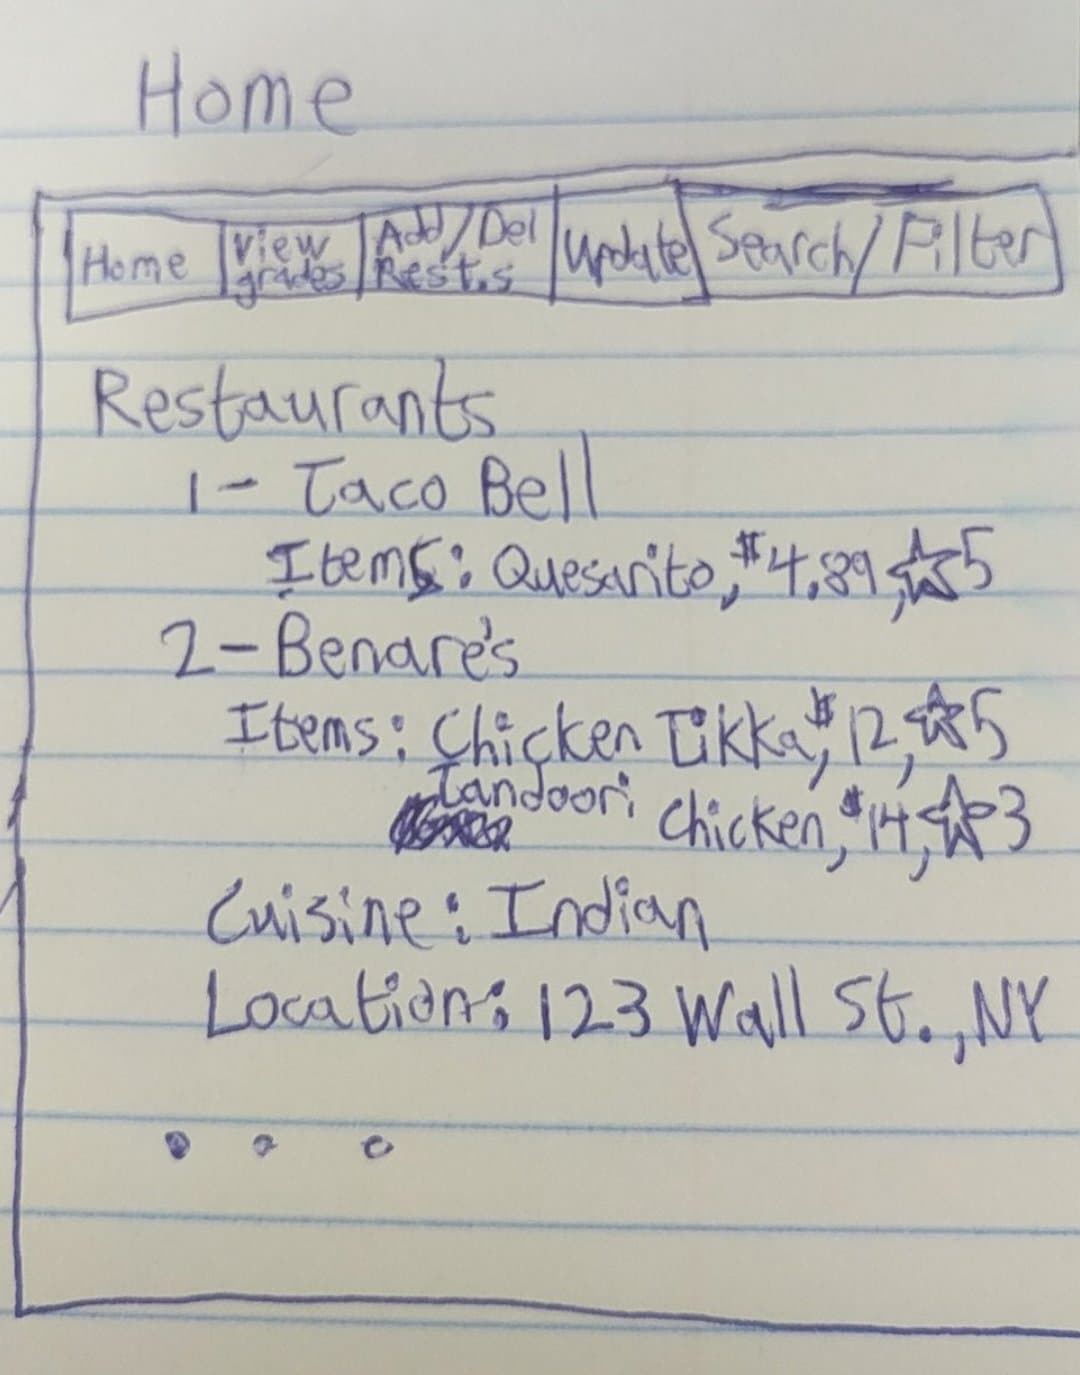 Home
Home | View grades | Add/Del Rest.s | Update | Search/Filter
Restaurants
1- Taco Bell
Items: Quesarito, $4.89, ☆5
2- Benare's
Items: Chicken Tikka, $12, ☆5
Tandoori Chicken, $14, ☆3
Cuisine: Indian
Location: 123 Wall St., NY
. . .